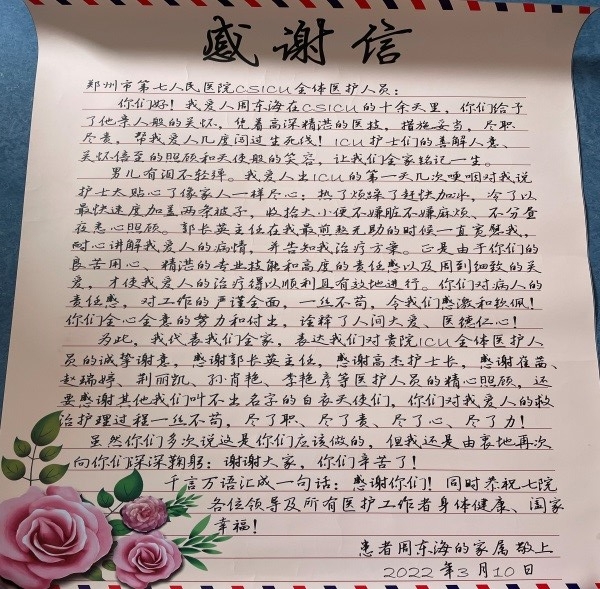 感谢信
郑州市第七人民医院CSICU全体医护人员：
你们好！我爱人周东海在CSICU的十余天里，你们给予
了他亲人般的关怀，凭着高深精湛的医技，措施妥当，尽职
尽责，帮我爱人几度闯过生死线！ICU护士们的善解人意、
关怀倍至的照顾和天使般的笑容，让我们全家铭记一生。
男儿有泪不轻弹。我爱人出ICU的第一天几次哽咽对我说
护士太贴心了像家人一样尽心：热了烦躁了赶快加冰，冷了以
最快速度加盖两条被子，收拾大小便不嫌脏不嫌麻烦、不分昼
夜悉心照顾。郭长英主任在我最煎熬无助的时候一直宽慰我，
耐心讲解我爱人的病情，并告知我治疗方案。正是由于你们的
良苦用心、精湛的专业技能和高度的责任感以及周到细致的关
爱，才使我爱人的治疗得以顺利且有效地进行。你们对病人的
责任感，对工作的严谨全面，一丝不苟，令我们感激和钦佩！
你们全心全意的努力和付出，诠释了人间大爱、医德仁心！
为此，我代表我们全家，表达我们对贵院ICU全体医护人
员的诚挚谢意，感谢郭长英主任，感谢高杰护士长，感谢崔茜、
赵瑞婷、荆丽凯、孙肖艳、李艳彦等医护人员的精心照顾，还
要感谢其他我们叫不出名字的白衣天使们，你们对我爱人的救
治护理过程一丝不苟，尽了职、尽了责、尽了心、尽了力！
虽然你们多次说这是你们应该做的，但我还是由衷地再次
向你们深深鞠躬：谢谢大家，你们辛苦了！
千言万语汇成一句话：感谢你们！同时恭祝七院
各位领导及所有医护工作者身体健康、阖家
幸福！
患者周东海的家属敬上
2022年3月10日